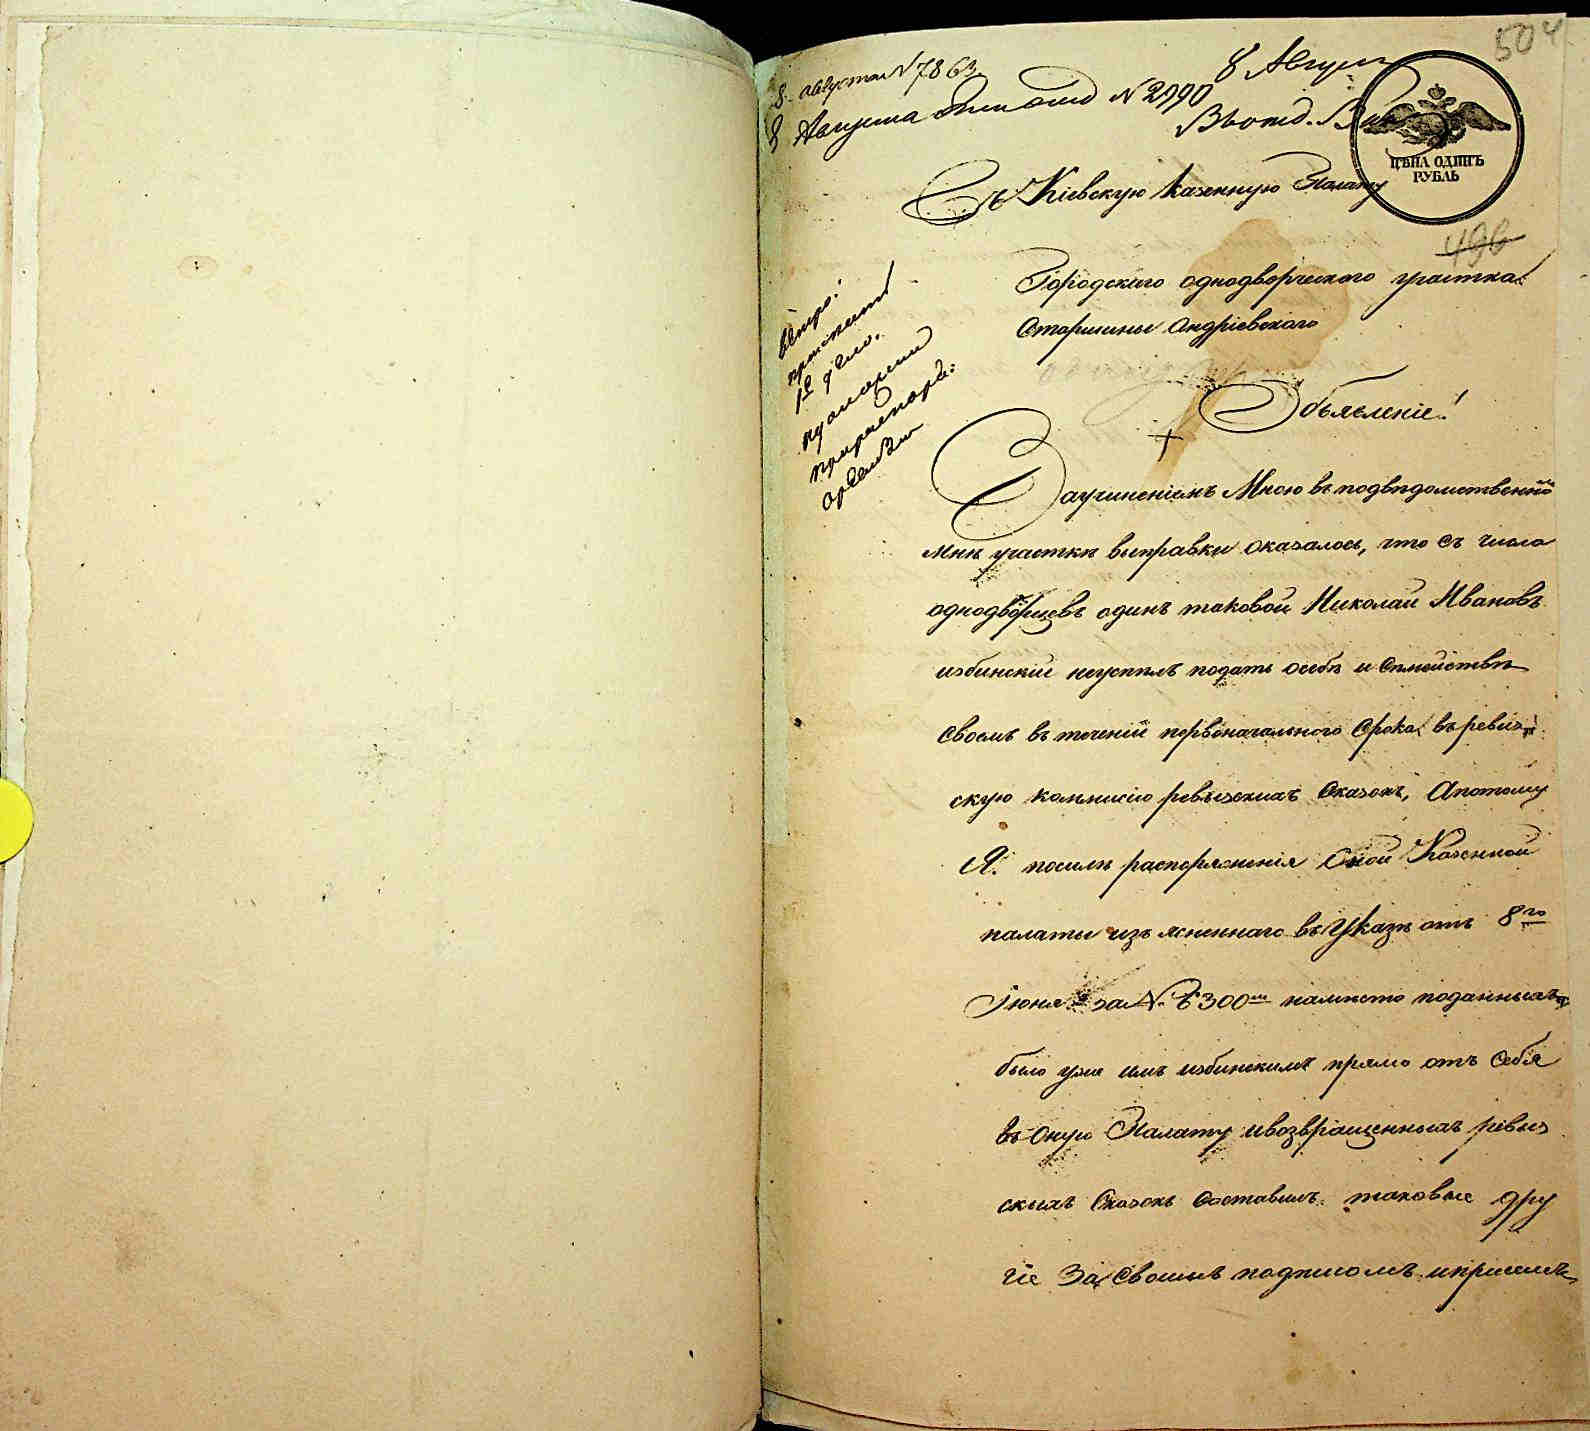 504
8 августа N 7863
8 Август
8 Августа N 2990
В Отд.
ЦѢНА ОДИНЪ
РУБЛЬ
Въ Кіевскую Казенную Палату
496
Городскаго однодворческаго участка
Старшины Андріевскаго
Объявленіе!
За учиненіемъ Мною въ подвѣдомственномъ
мнѣ участкѣ выправки оказалось, что съ числа
однодворцевъ одинъ таковой Николай Ивановъ
избинскій неуспѣлъ подать осебѣ и Семействѣ
своемъ въ теченій первоначального Срока въ ревиз
скую комисію ревизскихъ Сказокъ, Апотому
Я. посилѣ распоряженія Оной Казенной
палаты изъясненнаго въ Указѣ отъ 8го
Іюня за N. 6300м намѣсто поданныхъ
было уже имъ избинскимъ прямо отъ себя
въ Оную Палату ивозвращенныхъ ревиз
скихъ Сказокъ Составилъ таковые дру
гіе За Своимъ подписомъ